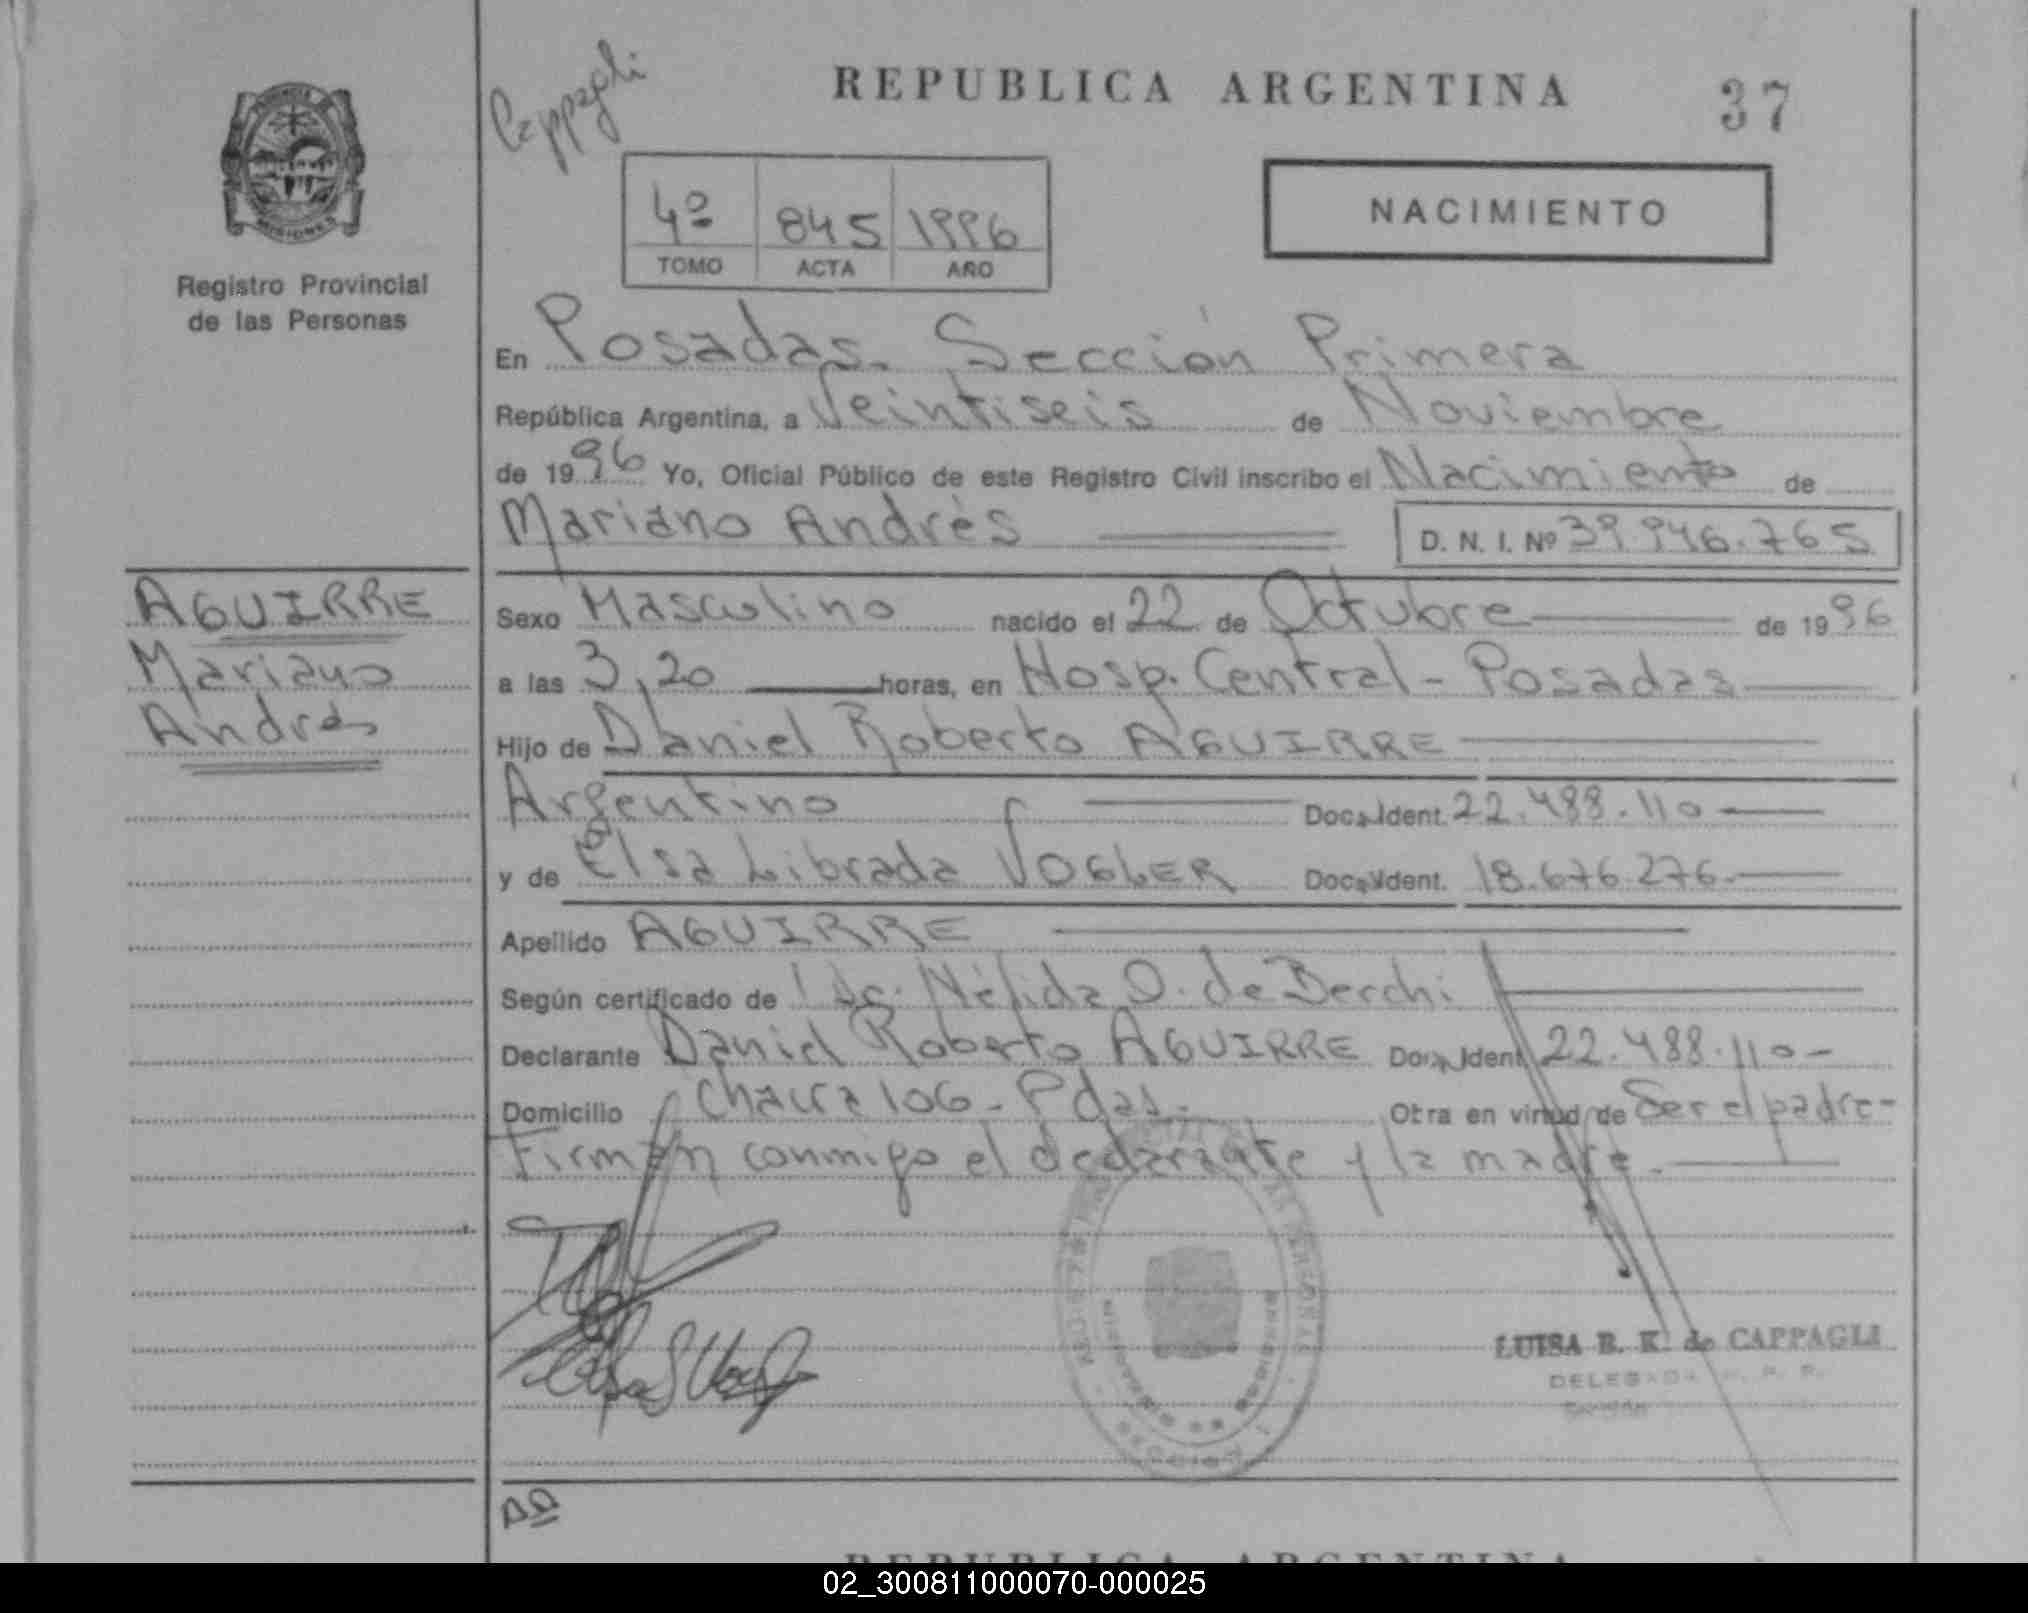 Cappagli
REPUBLICA ARGENTINA
37
4º 845 1996
TOMO ACTA AÑO
NACIMIENTO
MISIONES
Registro Provincial
de las Personas
En Posadas. Sección Primera
República Argentina, a Veintiseis de Noviembre
de 1996 Yo, Oficial Público de este Registro Civil inscribo el Nacimiento de
Mariano Andrés D. N. I. Nº 39.946.765
AGUIRRE
Mariano
Andrés
Sexo Masculino nacido el 22 de Octubre de 1996
a las 3,20 horas, en Hosp. Central - Posadas
Hijo de Daniel Roberto AGUIRRE
Argentino Doc. Ident. 22.488.110
y de Elsa Librada VOGLER Doc. Ident. 18.676.276
Apellido AGUIRRE
Según certificado de Nélida O. de Berchi
Declarante Daniel Roberto AGUIRRE Doc. Ident. 22.488.110-
Domicilio Chacra 106 - Pdas. Otra en virtud de Ser el padre-
Firman conmigo el declarante y la madre.
LUISA B. K. de CAPPAGLI
DELEGADA R. P. P.
Sección
REPUBLICA ARGENTINA
02_300811000070-000025